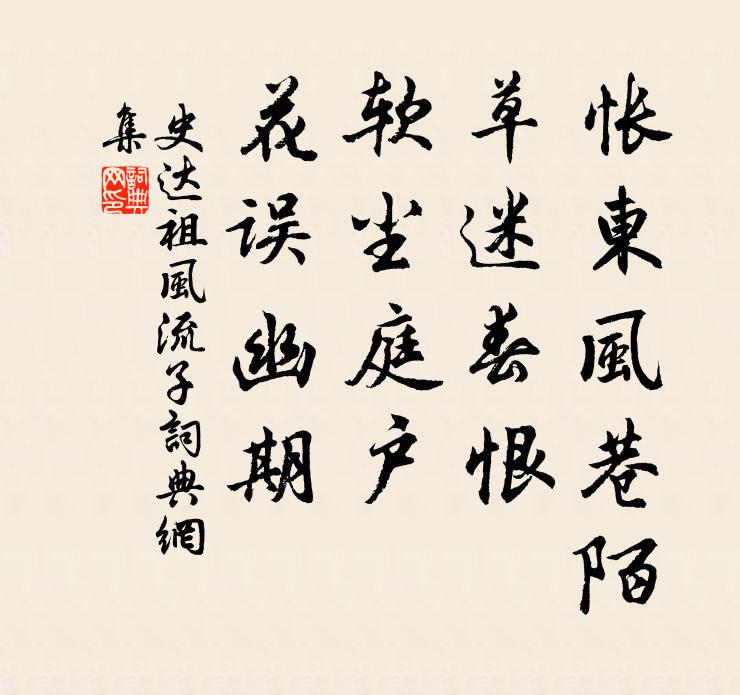 怅東風巷陌
草迷春恨
软尘庭户
花误幽期
史达祖風流子詞典網
集
詞典網印